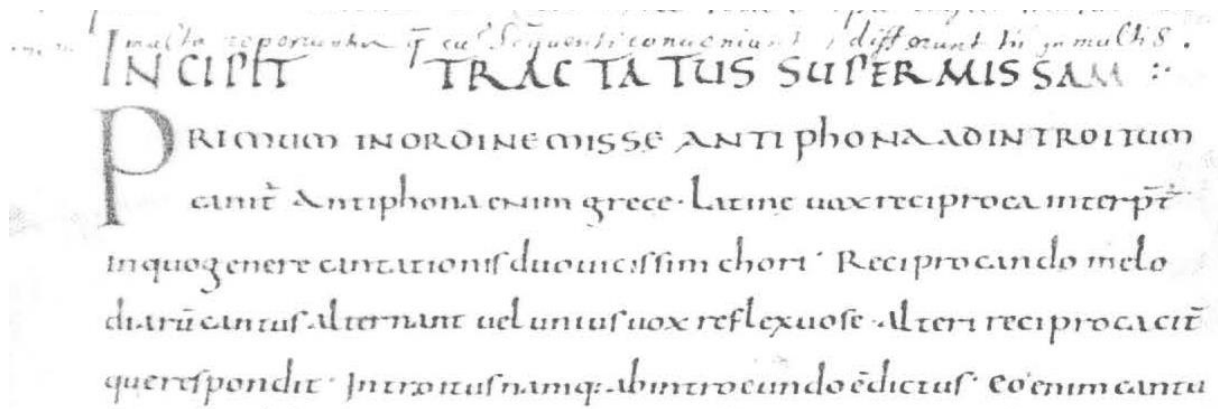 multa reperiuntur q̄ cū sequenti conueniunt & differunt tn̄ in multis.
INCIPIT TRACTATUS SUPER MISSAM :·
PRIMUM IN ORDINE MISSE ANTIPHONA AD INTROITUM
canit̄ Antiphona enim grece · Latine uox reciproca interp̄t̄
In quo genere cantationis duo uicissim chori · Reciprocando melo
diarū cantus alternant uel unius uox reflexuose · alteri reciproca cit̄
que respondit · Introitus namq: ab introeundo ē dictus · eo enim cantu